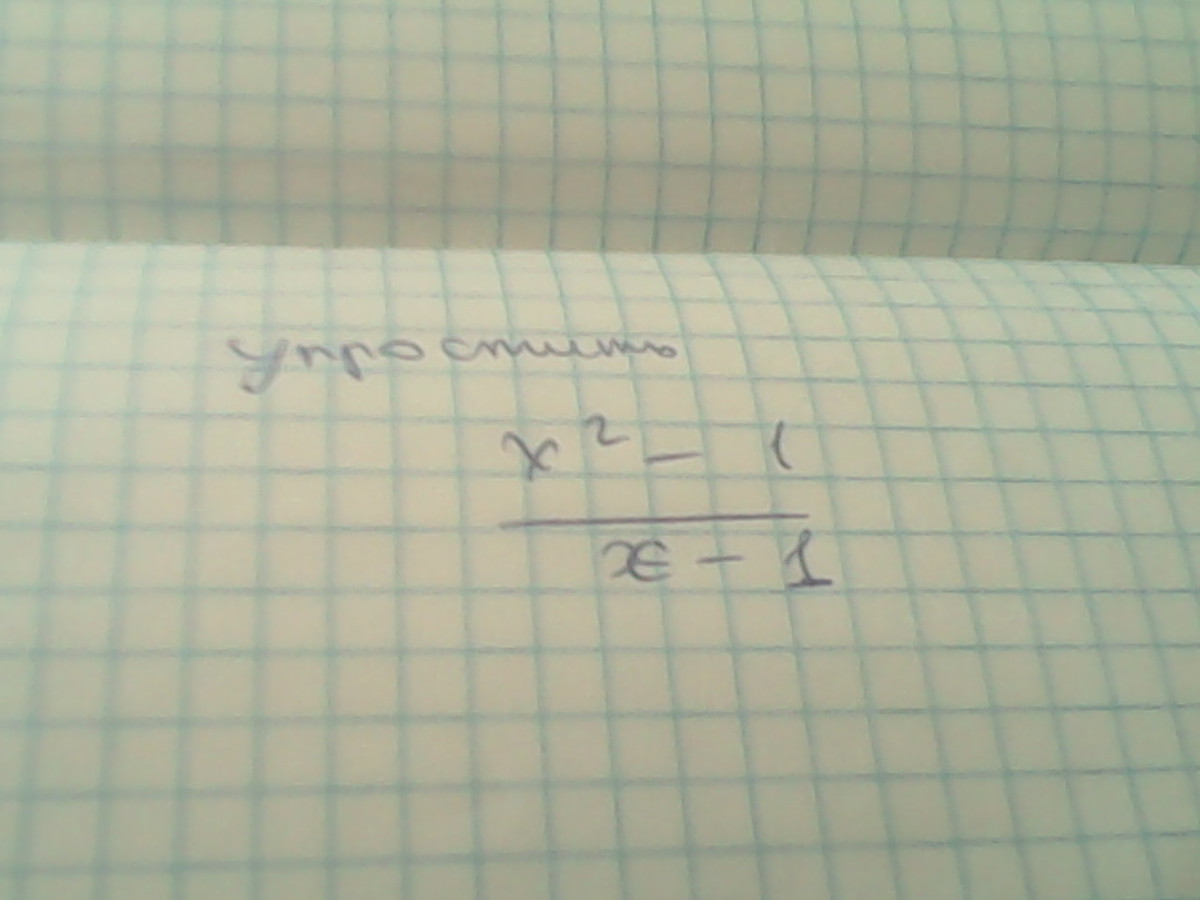 упростить
x² - 1
x - 1